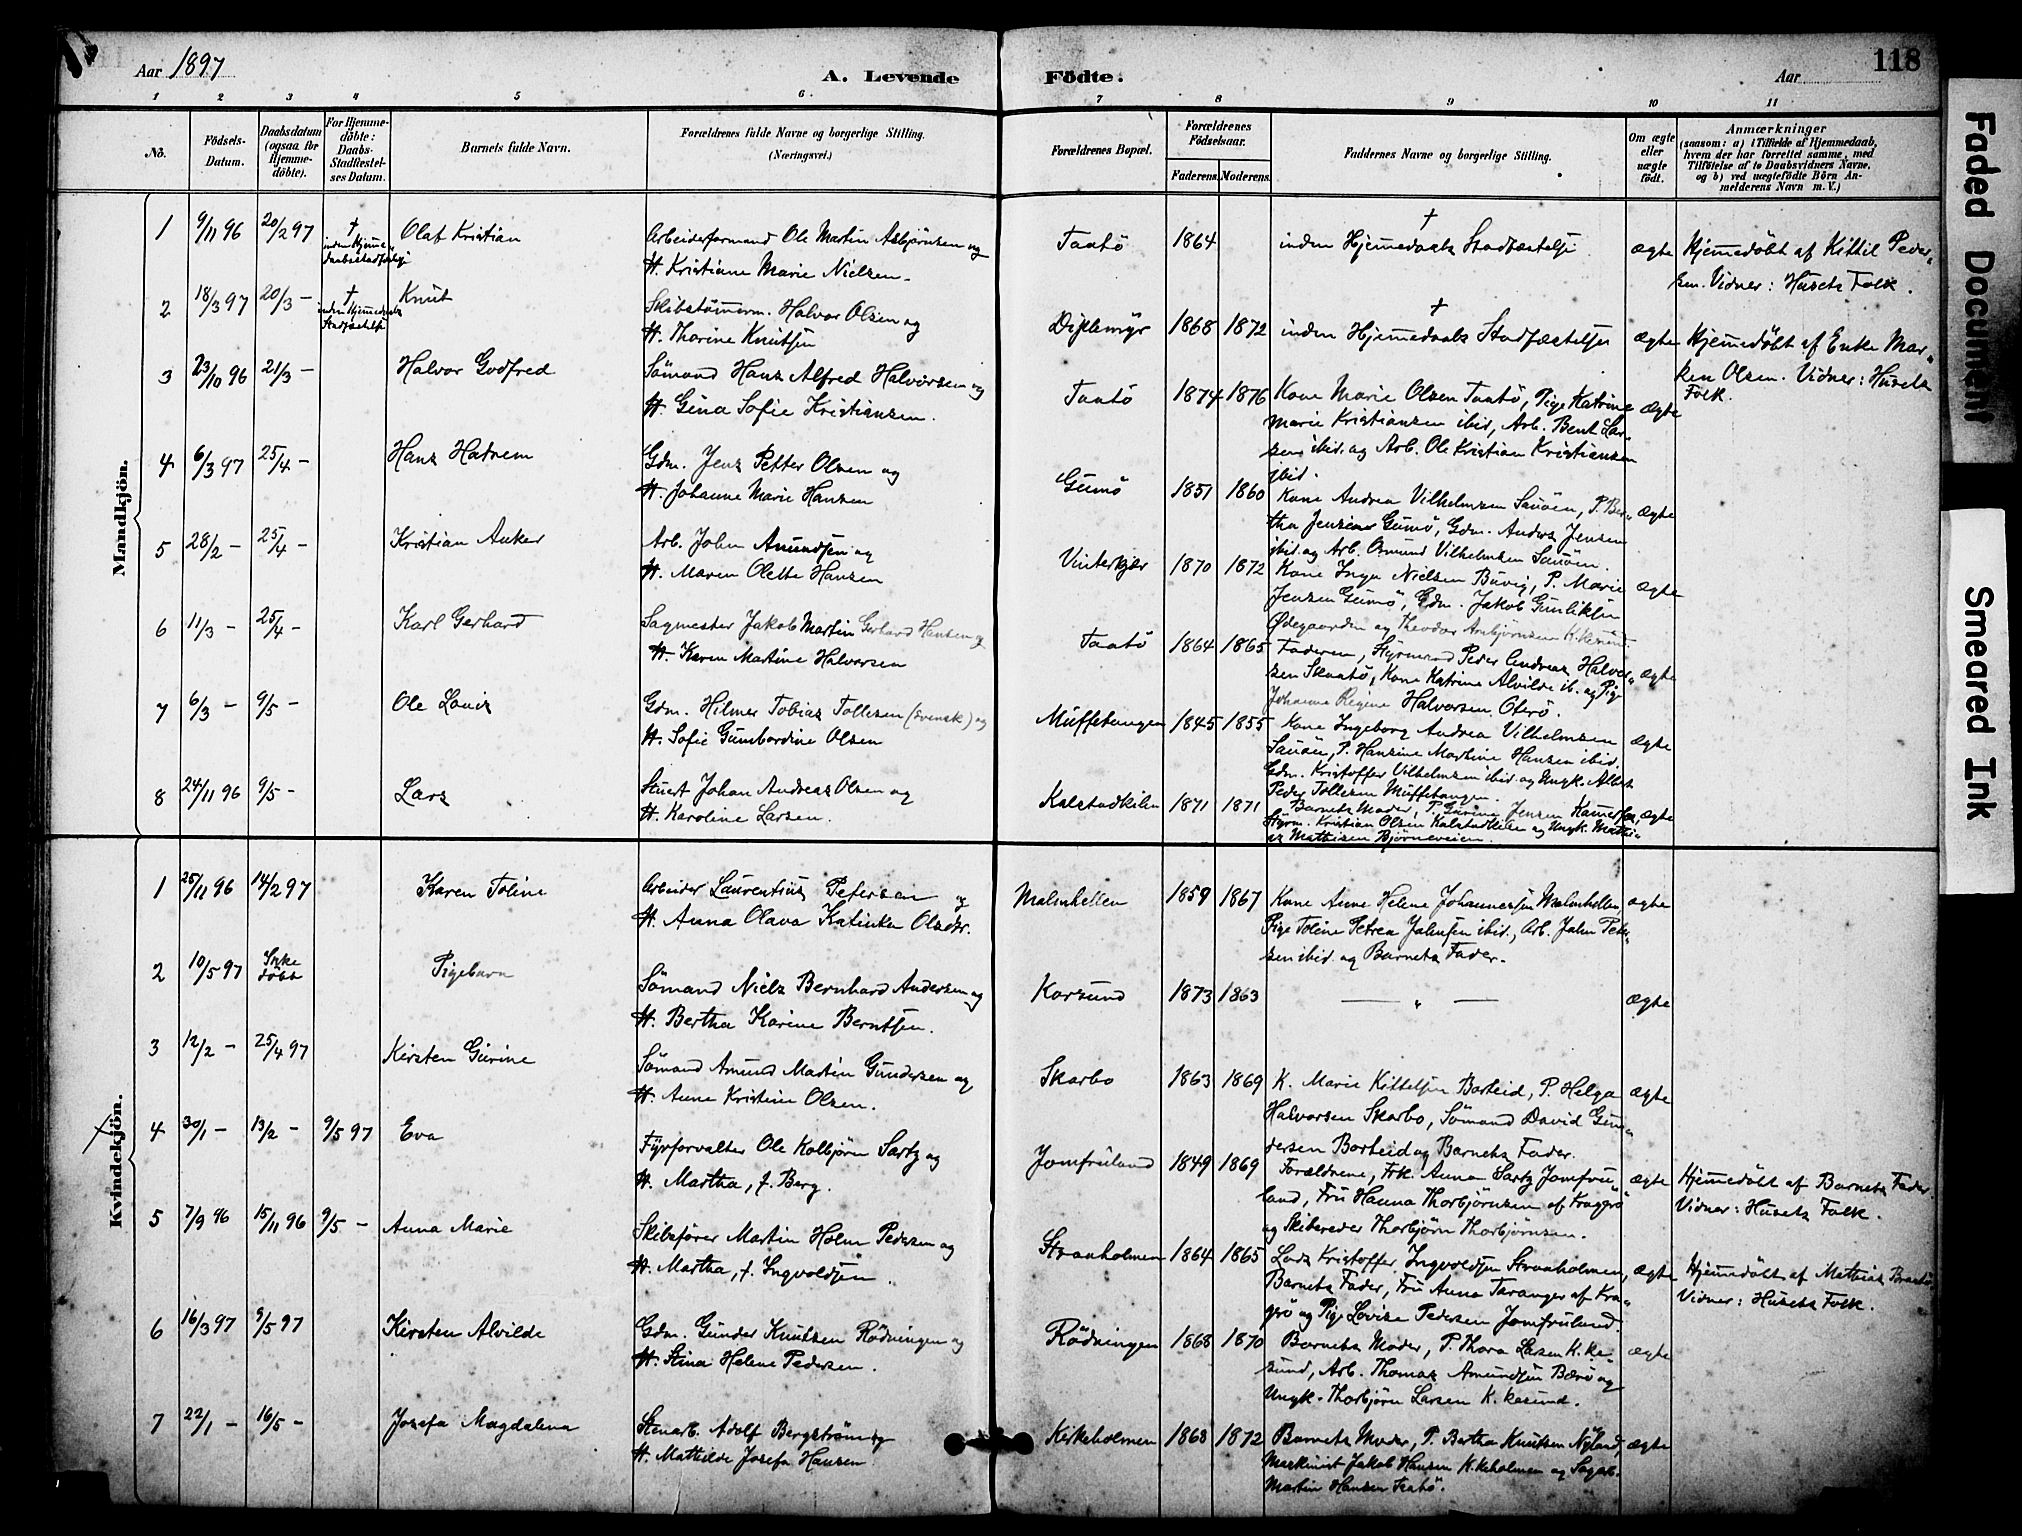 Aar 1897
A. Levende Födte.
Aar
118
1 2 3 4 5 6 7 8 9 10 11
No.
Födsels-Datum.
Daabsdatum (ogsaa for Hjemme-döbte).
For Hjemme-döbte: Daabs-Stadfæstel-ses Datum.
Barnets fulde Navn.
Forældrenes fulde Navne og borgerlige Stilling. (Næringsvei.)
Forældrenes Bopæl.
Forældrenes Födselsaar.
Faderens. Moderens.
Faddernes Navne og borgerlige Stilling.
Om ægte eller uægte födt.
Anmærkninger
(saasom: a) i Tilfælde af Hjemmedaab,
hvem der har forrettet samme, med
Tilföielse af to Daabsvidners Navne,
og b) ved uægtefödte Börn An-
melderens Navn m. V.)
Mandkjön.
1 9/11 96 20/2 97 † inden Hjemme-daabsstadfæstelse Olaf Kristian
Arbeiderformand Ole Martin Asbjörnsen og
H. Kristiane Marie Nielsen.
Taatö 1864 † inden Hjemmedaabs Stadfæstelse ægte
Hjemmedöbt af Kittil Peder-
sen. Vidner: Husets Folk.
2 18/3 97 20/3 – † inden Hjemmedaabs Stadfæstelse Knut
Skibstömmerm. Halvor Olsen og
H. Thorine Knutsen
Diplemyr 1868 1872 † inden Hjemmedaabs Stadfæstelse ægte
Hjemmedöbt af Enke Mar-
ken Olsen. Vidner: Husets
Folk.
3 23/10 96 21/3 – Halvor Godfred
Sömand Hans Alfred Halvorsen og
H. Gina Sofie Kristiansen.
Taatö 1874 1876 Kone Marie Olsen Taatö, Pige Katrine
Marie Kristiansen ibid, Arb. Bent Lar-
sen ibid. og Arb. Ole Kristian Kristiansen
ibid. ægte
4 6/3 97 25/4 – Hans Halvem
Gdm. Jens Petter Olsen og
H. Johanne Marie Hansen
Gumö 1851 1860 Kone Andrea Vilhelmsen Sauöen, P. Ber-
tha Jensine Gumö, Gdm. Anders Jensen
ibid. og Arb. Osmund Vilhelmsen Sauöen. ægte
5 28/2 – 25/4 – Kristian Anker
Arb. John Amundsen og
H. Maren Olette Hansen
Vinterkjær 1870 1872 Kone Inga Nielsen Buvig, P. Marie
Jensen Gumö, Gdm. Jakob Gunliksen
Ødegaarden og Theodor Arnbjörnsen K.kesund ægte
6 11/3 – 25/4 – Karl Gerhard
Sagmester Jakob Martin Gerhard Hansen og
H. Karen Martine Halvorsen
Taatö 1864 1865 Faderen, Styrmand Peder Andreas Halvor-
sen Skaatö, Kone Katrine Alvilde ib. og Pige
Johanne Regine Halvorsen Oterö. ægte
7 6/3 – 9/5 – Ole Louis
Gdm. Hilmer Tobias Tollesen (svensk) og
H. Sofie Gumbordine Olsen
Muffetangen 1845 1855 Kone Ingeborg Andrea Vilhelmsen
Sauöen, P. Hansine Martine Hansen ibid.
Gdm. Kristoffer Vilhelmsen ibid. og Ungk. Albert
Peder Tollesen Muffetangen. ægte
8 24/11 96 9/5 – Lars
Stuert Johan Andreas Olsen og
H. Karoline Larsen.
Kalstadkilen 1871 1871 Barnets Moder, P. Gurine Jensen
Styrm. Kristian Olsen Kalstadkilen og Ungk. Mathi-
as Mathisen Bjørneveien. ægte
Kvindekjön.
1 25/11 96 14/2 97 Karen Toline
Arbeider Laurentius Petersen og
H. Anna Olava Katinka Olsdtr.
Malmhellen 1859 1867 Kone Anne Helene Johannessen Malmhellen,
Pige Toline Petrea Johnsen ibid., Arb. John Peter-
sen ibid. og Barnets Fader. ægte
2 10/5 97 Ikke döbt Pigebarn
Sömand Niels Bernhard Andersen og
H. Bertha Karine Berntsen.
Korsund 1873 1863 — " — ægte
3 12/2 – 25/4 97 Kirsten Gurine
Sömand Amund Martin Gundersen og
H. Anne Kristine Olsen.
Skarbo 1863 1869 K. Marie Kittelsen Borteid, P. Helga
Halvorsen Skarbo, Sömand David Gun-
dersen Borteid og Barnets Fader. ægte
4 30/1 – 13/2 – 9/5 97 Eva
Fyrforvalter Ole Kolbjörn Sartz og
H. Martha, f. Berg.
Jomfruland 1849 1869 Forældrene, Frk. Anna Sartz Jomfru-
land, Fru Hanna Thorbjörnsen af Kragerö
og Skibsreder Thorbjörn Thorbjörnsen. ægte
Hjemmedöbt af Barnets Fader.
Vidner: Husets Folk.
5 7/9 96 15/11 96 9/5 – Anna Marie
Skibsförer Martin Holm Pedersen og
H. Martha, f. Ingvoldsen.
Straaholmen 1864 1865 Lods Kristoffer Ingvoldsen Straaholmen,
Barnets Fader, Fru Anna Taranger af Kra-
gerö og Pige Lovise Pedersen Jomfruland. ægte
Hjemmedöbt af Mathias
Vidner: Husets Folk.
6 16/3 97 9/5 97 Kirsten Alvilde
Gdm. Gunder Knutsen Rödningen og
H. Stina Helene Pedersen.
Rödningen 1868 1870 Barnets Moder, P. Thora Larsen K.ke-
sund, Arb. Thomas Amundsen Bærö og
Ungk. Thorbjörn Larsen K.kesund. ægte
7 22/1 – 16/5 – Josefa Magdalena
Stenarb. Adolf Bergström og
H. Mathilde Josefa Hansen
Kirkeholmen 1868 1872 Barnets Moder, P. Bertha Knutsen Nyland,
Maskinist Jakob Hansen K.keholmen og Sagarb.
Martin Hansen Taatö. ægte
Faded Document
Smeared Ink